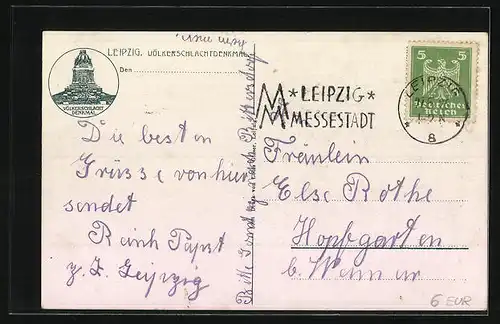 LEIPZIG. VÖLKERSCHLACHTDENKMAL
Den
VÖLKERSCHLACHT
DENKMAL
Die besten
Grüsse von hier
sendet
Reinh Papst
z. Z. Leipzig
LEIPZIG
MESSESTADT
5 5
Deutsches
Reich
LEIPZIG
8
Fräulein
Else Rothe
Hopfgarten
b. Weimar
6 EUR